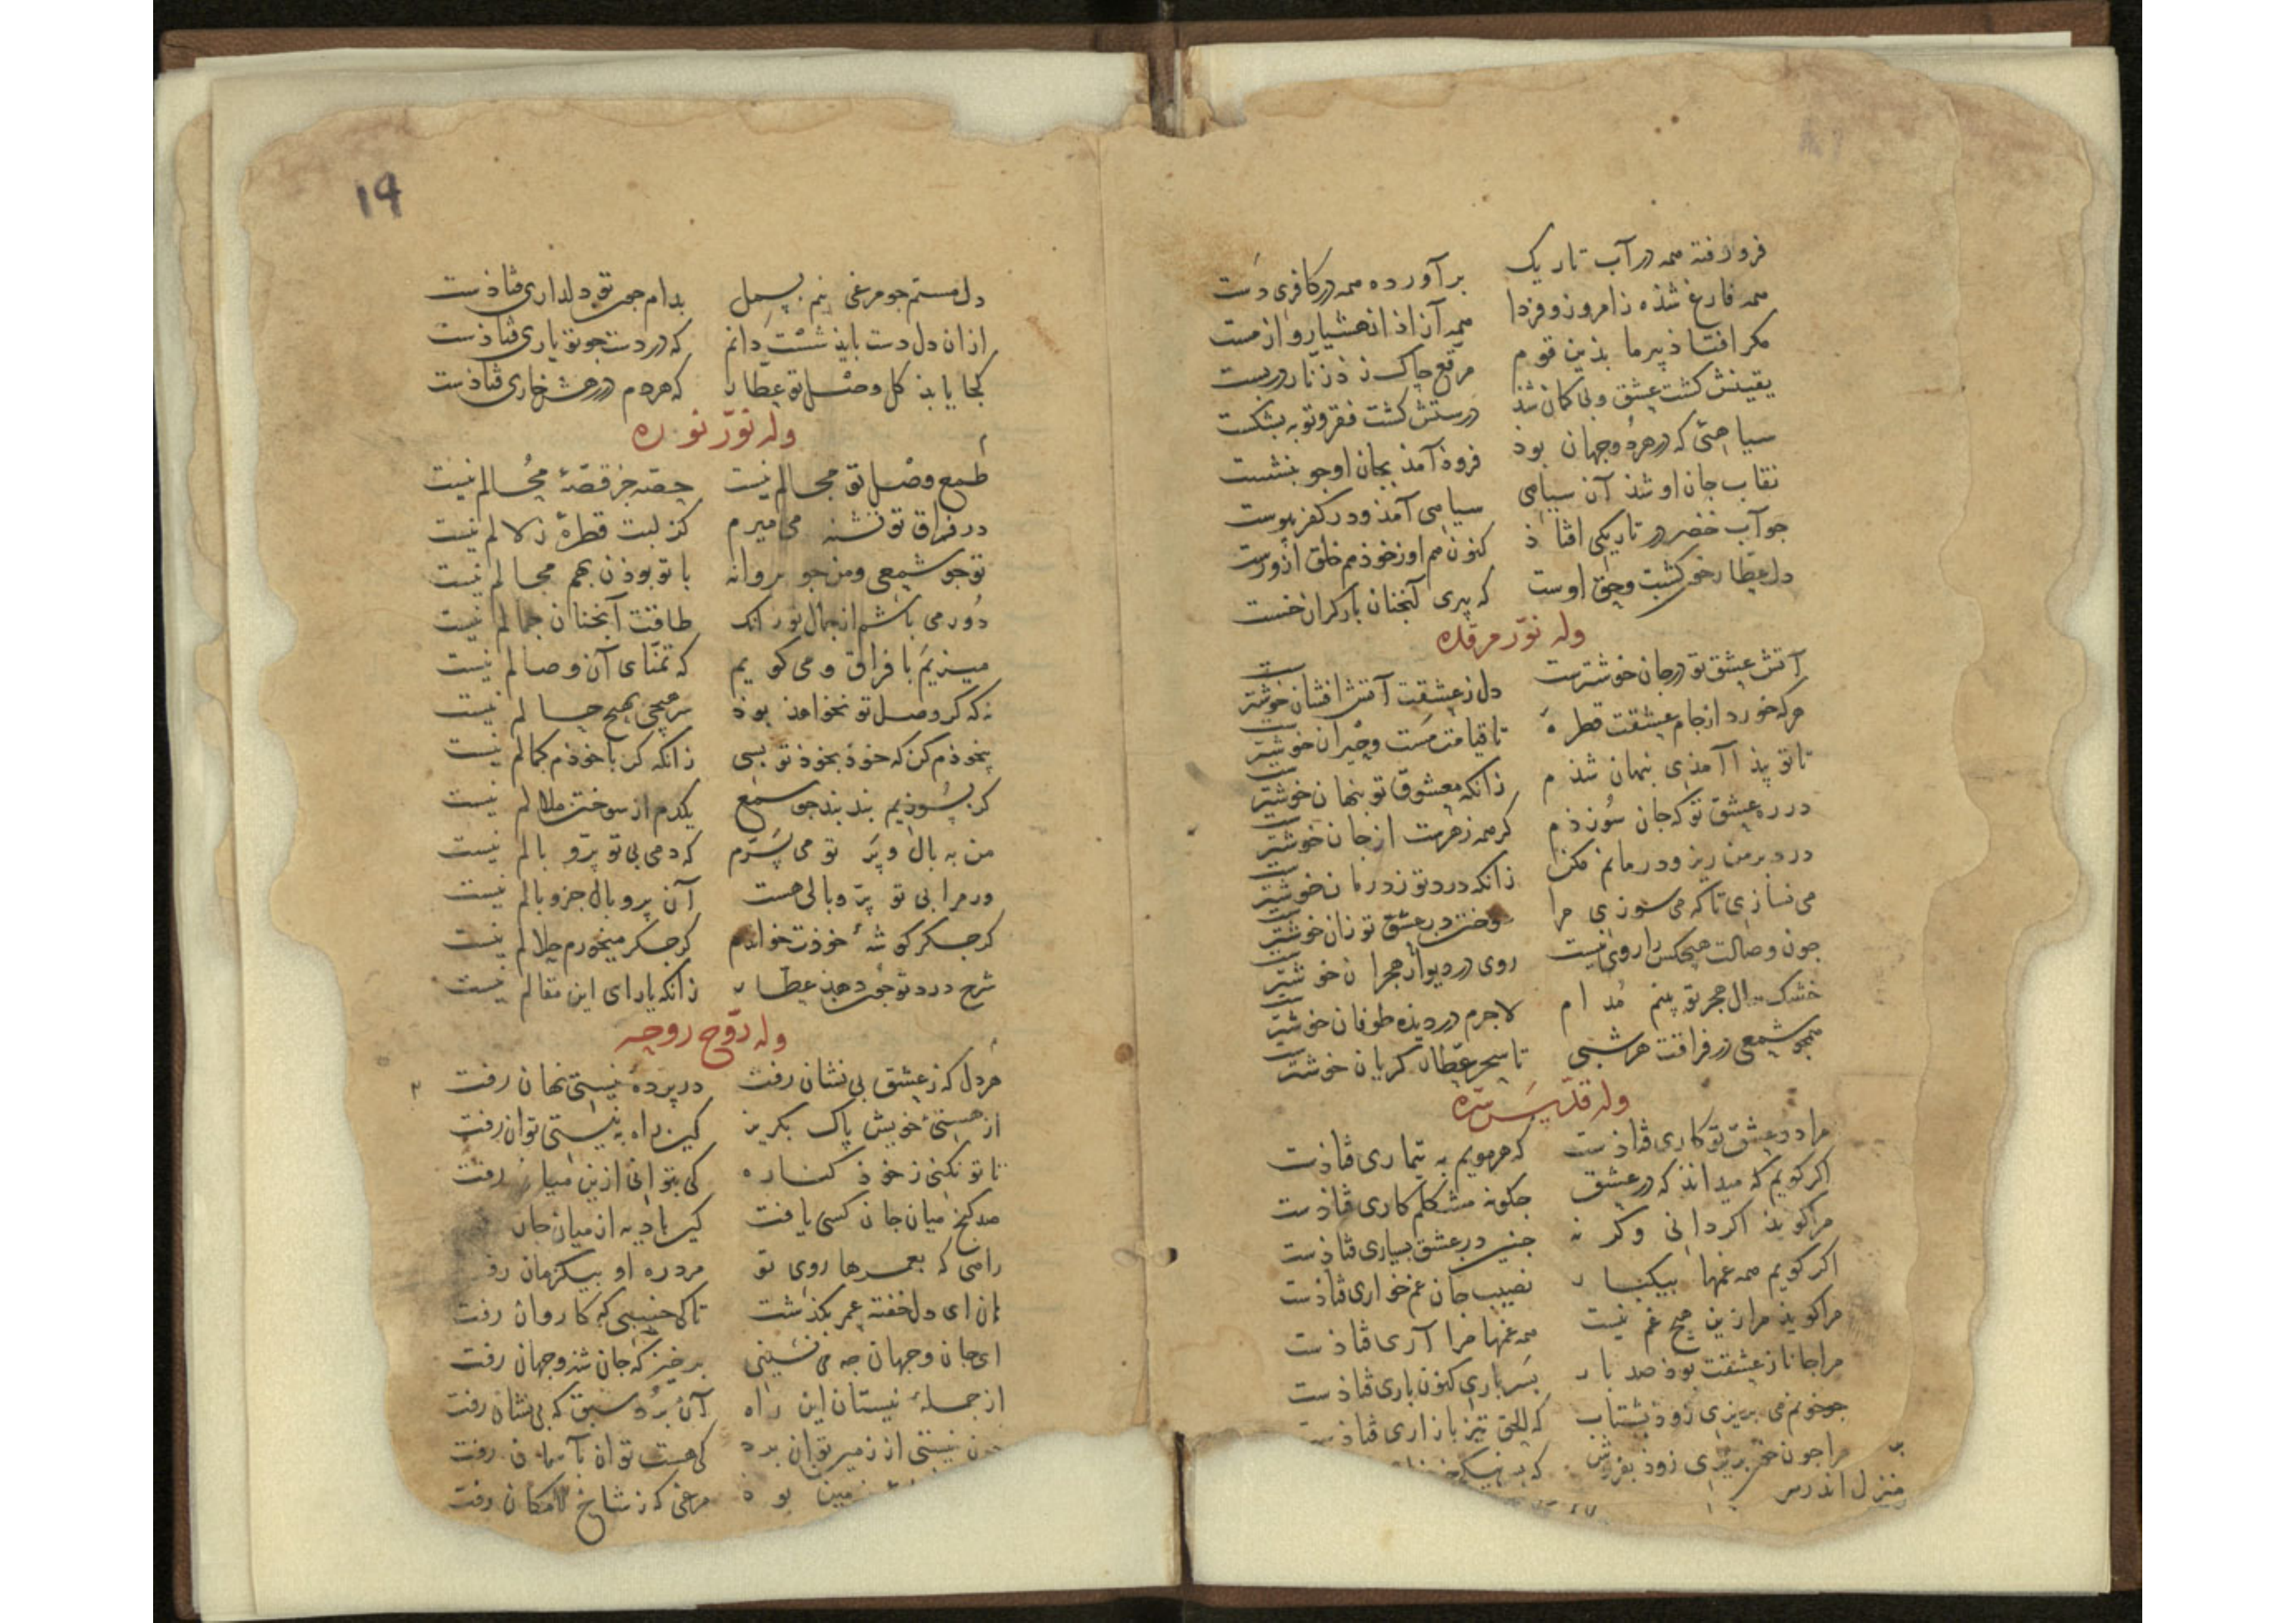 فرو رفته همه در آب تاریک برآورده همه در کافری دست
همه فارغ شذه ز امروز و فردا همه آزاذ از هشیار و از مست
مکر افتاذ پیر ما بذین قوم مرقع چاک زذ زنار در بست
یقینش کشت عشق و بی کمان شذ درستش کشت فقر و توبه بشکست
سیاهیی که در هر دو جهان بوذ فروذ آمذ بجان او جو بنشست
نقاب جان او شذ آن سیاهی سیاهی آمذ و در کفر پیوست
جو آب خضر در تاریکی افتاذ کنون هم او زخوذ هم خلق ازو رست
دل عطار خون کشت و حق اوست که پیری آنجنان بارکران خست
وله نوّر مرقده
آتش عشق تو در جان خوشترست دل ز عشقت آتش افشان خوشترست
هرکه خورد از جام عشقت قطرهٔ تا قیامت مست و حیران خوشترست
تا تو پیذا آمذی بنهان شذم زانکه معشوق تو بنهان خوشترست
در ره عشق تو که جان سوزذم کر همه زهرست از جان خوشترست
درد بر من ریز و درمانم مکن زانکه درد تو ز درمان خوشترست
می نسازی تا که می سوزی مرا سوختن در عشق تو زان خوشترست
جون وصالت هیچکس را روی نیست روی در دیوار هجران خوشترست
خشک سال هجر تو بینم مدام لاجرم در دیذه طوفان خوشترست
همجو شمعی در فراقت هر شبی تا سحر عطار کریان خوشترست
وله قدّس سرّه
مرا در عشق تو کاری فتاذست که هر مویم به تیماری فتاذست
اکر کویم که میداند که در عشق جکونه مشکلم کاری فتاذست
مرا کویذ اکر دانی وکر نه جنین در عشق بسیاری فتاذست
اکر کویم همه غمها بیکبار نصیب جان غم خواری فتاذست
مرا کویذ مرا زین هیچ غم نیست همه غمها مرا آری فتاذست
مرا جانا ز عشقت بوذ صد بار بسر باری کنون باری فتاذست
جو خونم می بریزی زوذ بشتاب که الحق تیز بازاری فتاذست
مرا جون خر بریزی زوذ بفروش که
منزل اندرس
۱۹
دل مستم جو مرغی نیم بسمل بدام جون تو دلداری فتاذست
از ان دل دست بایذ شست دانم که در دست جو تو یاری فتاذست
کجا یابذ کل وصل تو عطار که هر دم در رهش خاری فتاذست
وله نوّر نوره
طمع وصل تو مجالم نیست حصه جز قصهٔ محالم نیست
در فراق تو تشنه می میرم کز لبت قطرهٔ زلالم نیست
تو جو شمعی و من جو بروانه با تو بوذن بهم مجالم نیست
دور می باشم از جمال تو زانک طاقت آنجنان جمالم نیست
میزیم با فراق و می کویم که تمنّای آن وصالم نیست
نه که کر وصل تو نخواهذ بوذ سر هیچی بهیچ حالم نیست
بیخوذم کن که خوذ بخوذ تو بسی زانکه کر با خوذم کمالم نیست
کر بسوزیم بند بند جو شمع یکدم از سوختن ملالم نیست
من به بال و پر تو می پرم که دمی بی تو پر و بالم نیست
ور مرا بی تو پر و بالی هست آن پر و بال جز وبالم نیست
کر جکر کوشهٔ خوذت خوانم کر جکر میخورم حلالم نیست
شرح درد تو جون دهذ عطار زانکه یارای این مقالم نیست
وله روّح روحه
هر دل که ز عشق بی نشان رفت در پردهٔ نیستی نهان رفت
از هستئ خویش پاک بکریز کین راه به نیستی توان رفت
تا تو نکنی ز خوذ کناره کی بتوانی ازین میان رفت
صد کنج میان جان کسی یافت کین بادیه از میان جان
راهی که بعمرها روی تو مرد ره او بیکزمان رفت
هان ای دل خفته عمر بکذشت تا کی خسبی که کاروان رفت
ای جان و جهان جه می نشینی برخیز که جان شذ و جهان رفت
از جملهٔ نیستان این راه آن برد سبق که بی نشان رفت
جون نیستی از زمین توان برد کی هست توان بآسمان رفت
زمین بوذ مرغی که ز شاخ لامکان رفت